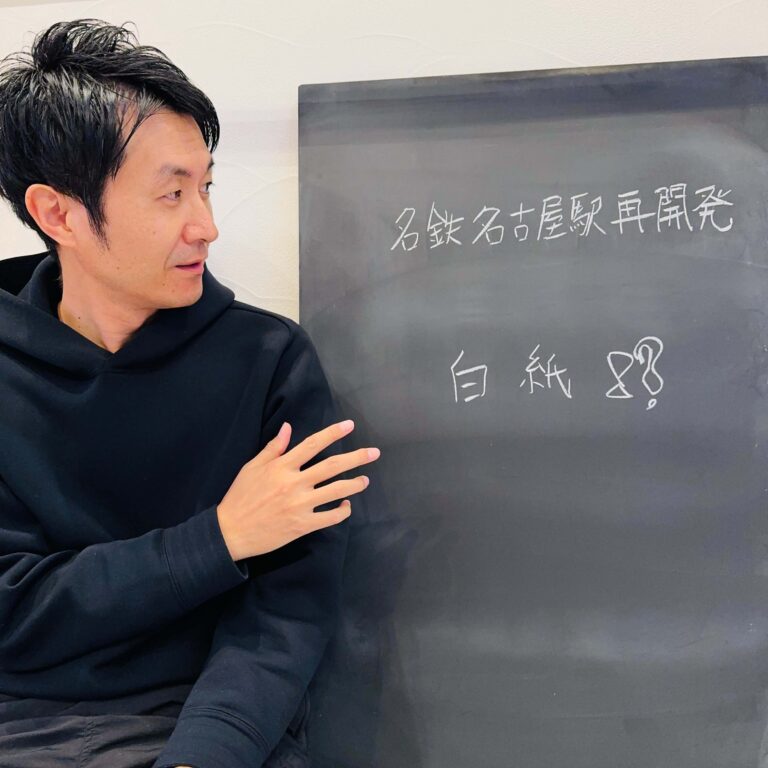 名鉄名古屋駅再開発
白紙!?